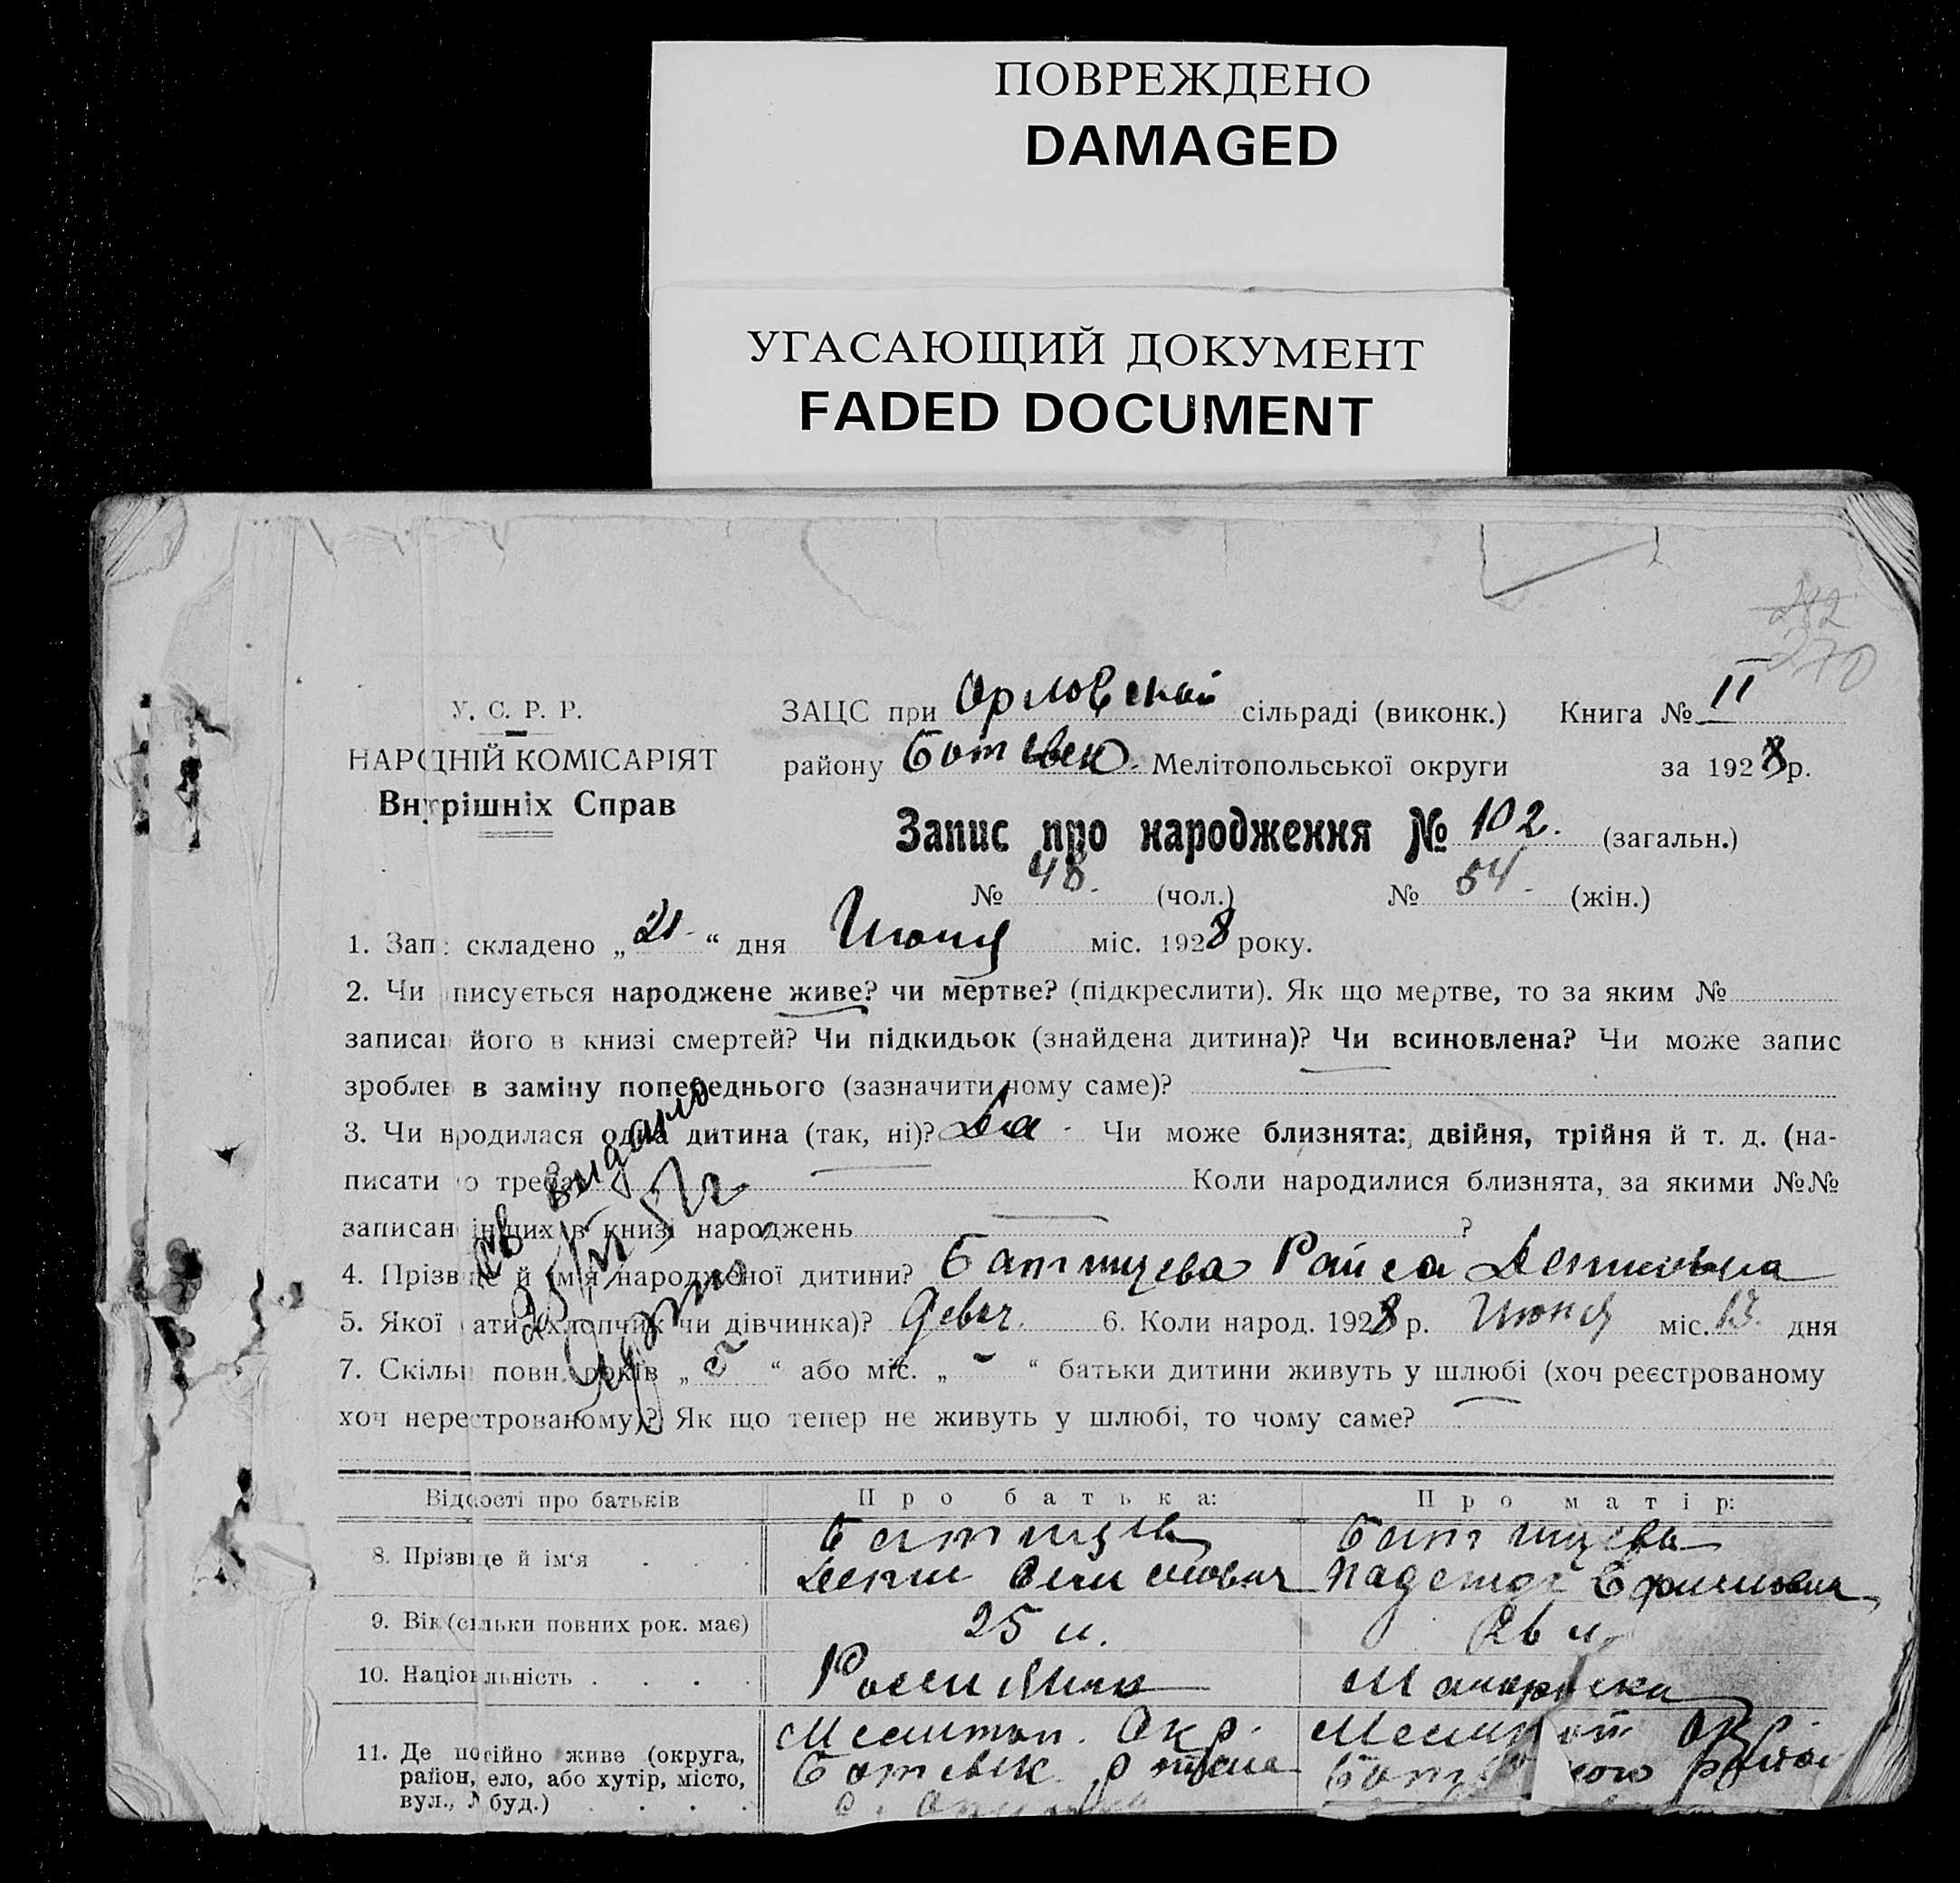 ПОВРЕЖДЕНО
DAMAGED
УГАСАЮЩИЙ ДОКУМЕНТ
FADED DOCUMENT
242
270
У. С. Р. Р.
НАРОДНІЙ КОМІСАРІЯТ
Внутрішніх Справ
ЗАЦС при Орловской сільраді (виконк.) Книга № II
району Ботевск. Мелітопольської округи за 1928 р.
Запис про народження № 102. (загальн.)
№ 48. (чол.) № 54. (жін.)
1. Запис складено „21“ дня Июня міс. 1928 року.
2. Чи писується народжене живе? чи мертве? (підкреслити). Як що мертве, то за яким №
записан його в книзі смертей? Чи підкидьок (знайдена дитина)? Чи всиновлена? Чи може запис
зроблен в заміну попереднього (зазначити чому саме)?
3. Чи народилася одна дитина (так, ні)? Да - Чи може близнята: двійня, трійня й т. д. (на-
писати що треба) Коли народилися близнята, за якими №№
записані інших в книзі народжень ?
4. Прізвище й ім'я народженої дитини? Батищева Раиса Денисовна
5. Якої стати (хлопчик чи дівчинка)? девоч. 6. Коли народ. 1928 р. Июня міс. 13. дня
7. Скільки повн. років „ “ або міс. „ - “ батьки дитини живуть у шлюбі (хоч реєстрованому
хоч нереєстрованому)? Як що тепер не живуть у шлюбі, то чому саме?
св. выдано
Відомості про батьків Про батька: Про матір:
8. Прізвище й ім'я . . . Батищев Батищева
Денис Надежда
9. Вік (скільки повних рок. має) 25 л. 26 л.
10. Національність . . . .
11. Де постійно живе (округа, Мелитоп. Окр. Мелитоп Окр.
район, село, або хутір, місто, Ботевск. района района
вул., № буд.) . . . .